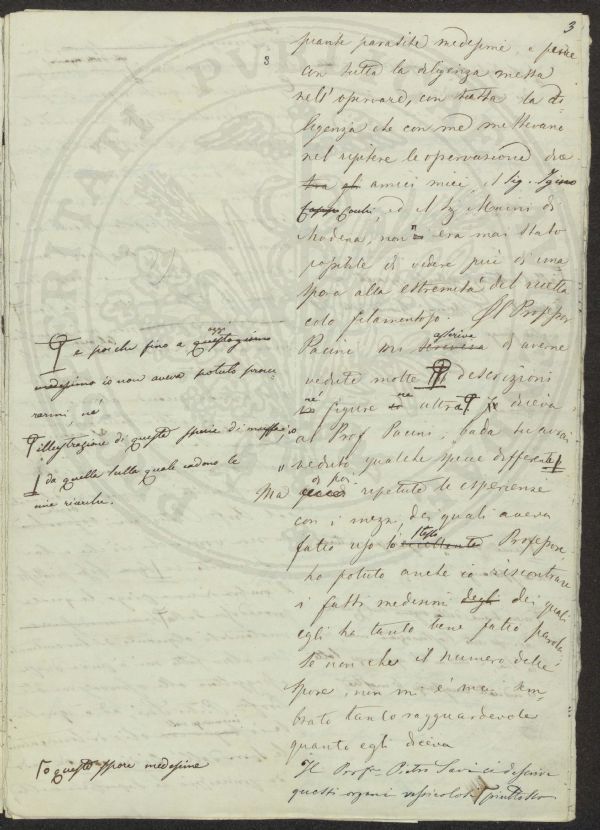 3
8
piante parasite medesime e perciò
con tutta la diligenza messa
nell'osservare, con tutta la di
ligenza che con me mettevano
nel ripetere le osservazioni due
tra gli amici miei, il Sig.
Conti, ed il Sig Mucini di
Modena, non era mai stato
possibile di vedere più di una
spora alla estremità del ricetta
colo filamentoso. Il Professor
Pacini mi asseriva di averne
vedute molte descrizioni
né figure né ultra diceva
al Prof Pacini, bada tu avrai
veduto qualche specie differente
Ma di poi repetute le esperienze
con i mezzi, dei quali aveva
fatto uso lo stesso eccellente Professore,
ho potuto anche io riscontrare
i fatti medesimi degli dei quali
egli ha tanto bene fatto parola
se non che il numero delle
spore, non mi è mai sem
brato tanto ragguardevole
quanto egli diceva
Il Profr. Pietro Savi ci descrive
questi organi vessicolosi piuttosto
e poi che fino a quest'oggi giorno
medesimo io non aveva potuto procu
rarmi né
illustrazione di queste specie di muffe, o
da quella sulla quale cadono le
mie ricerche.
o queste spore medesime